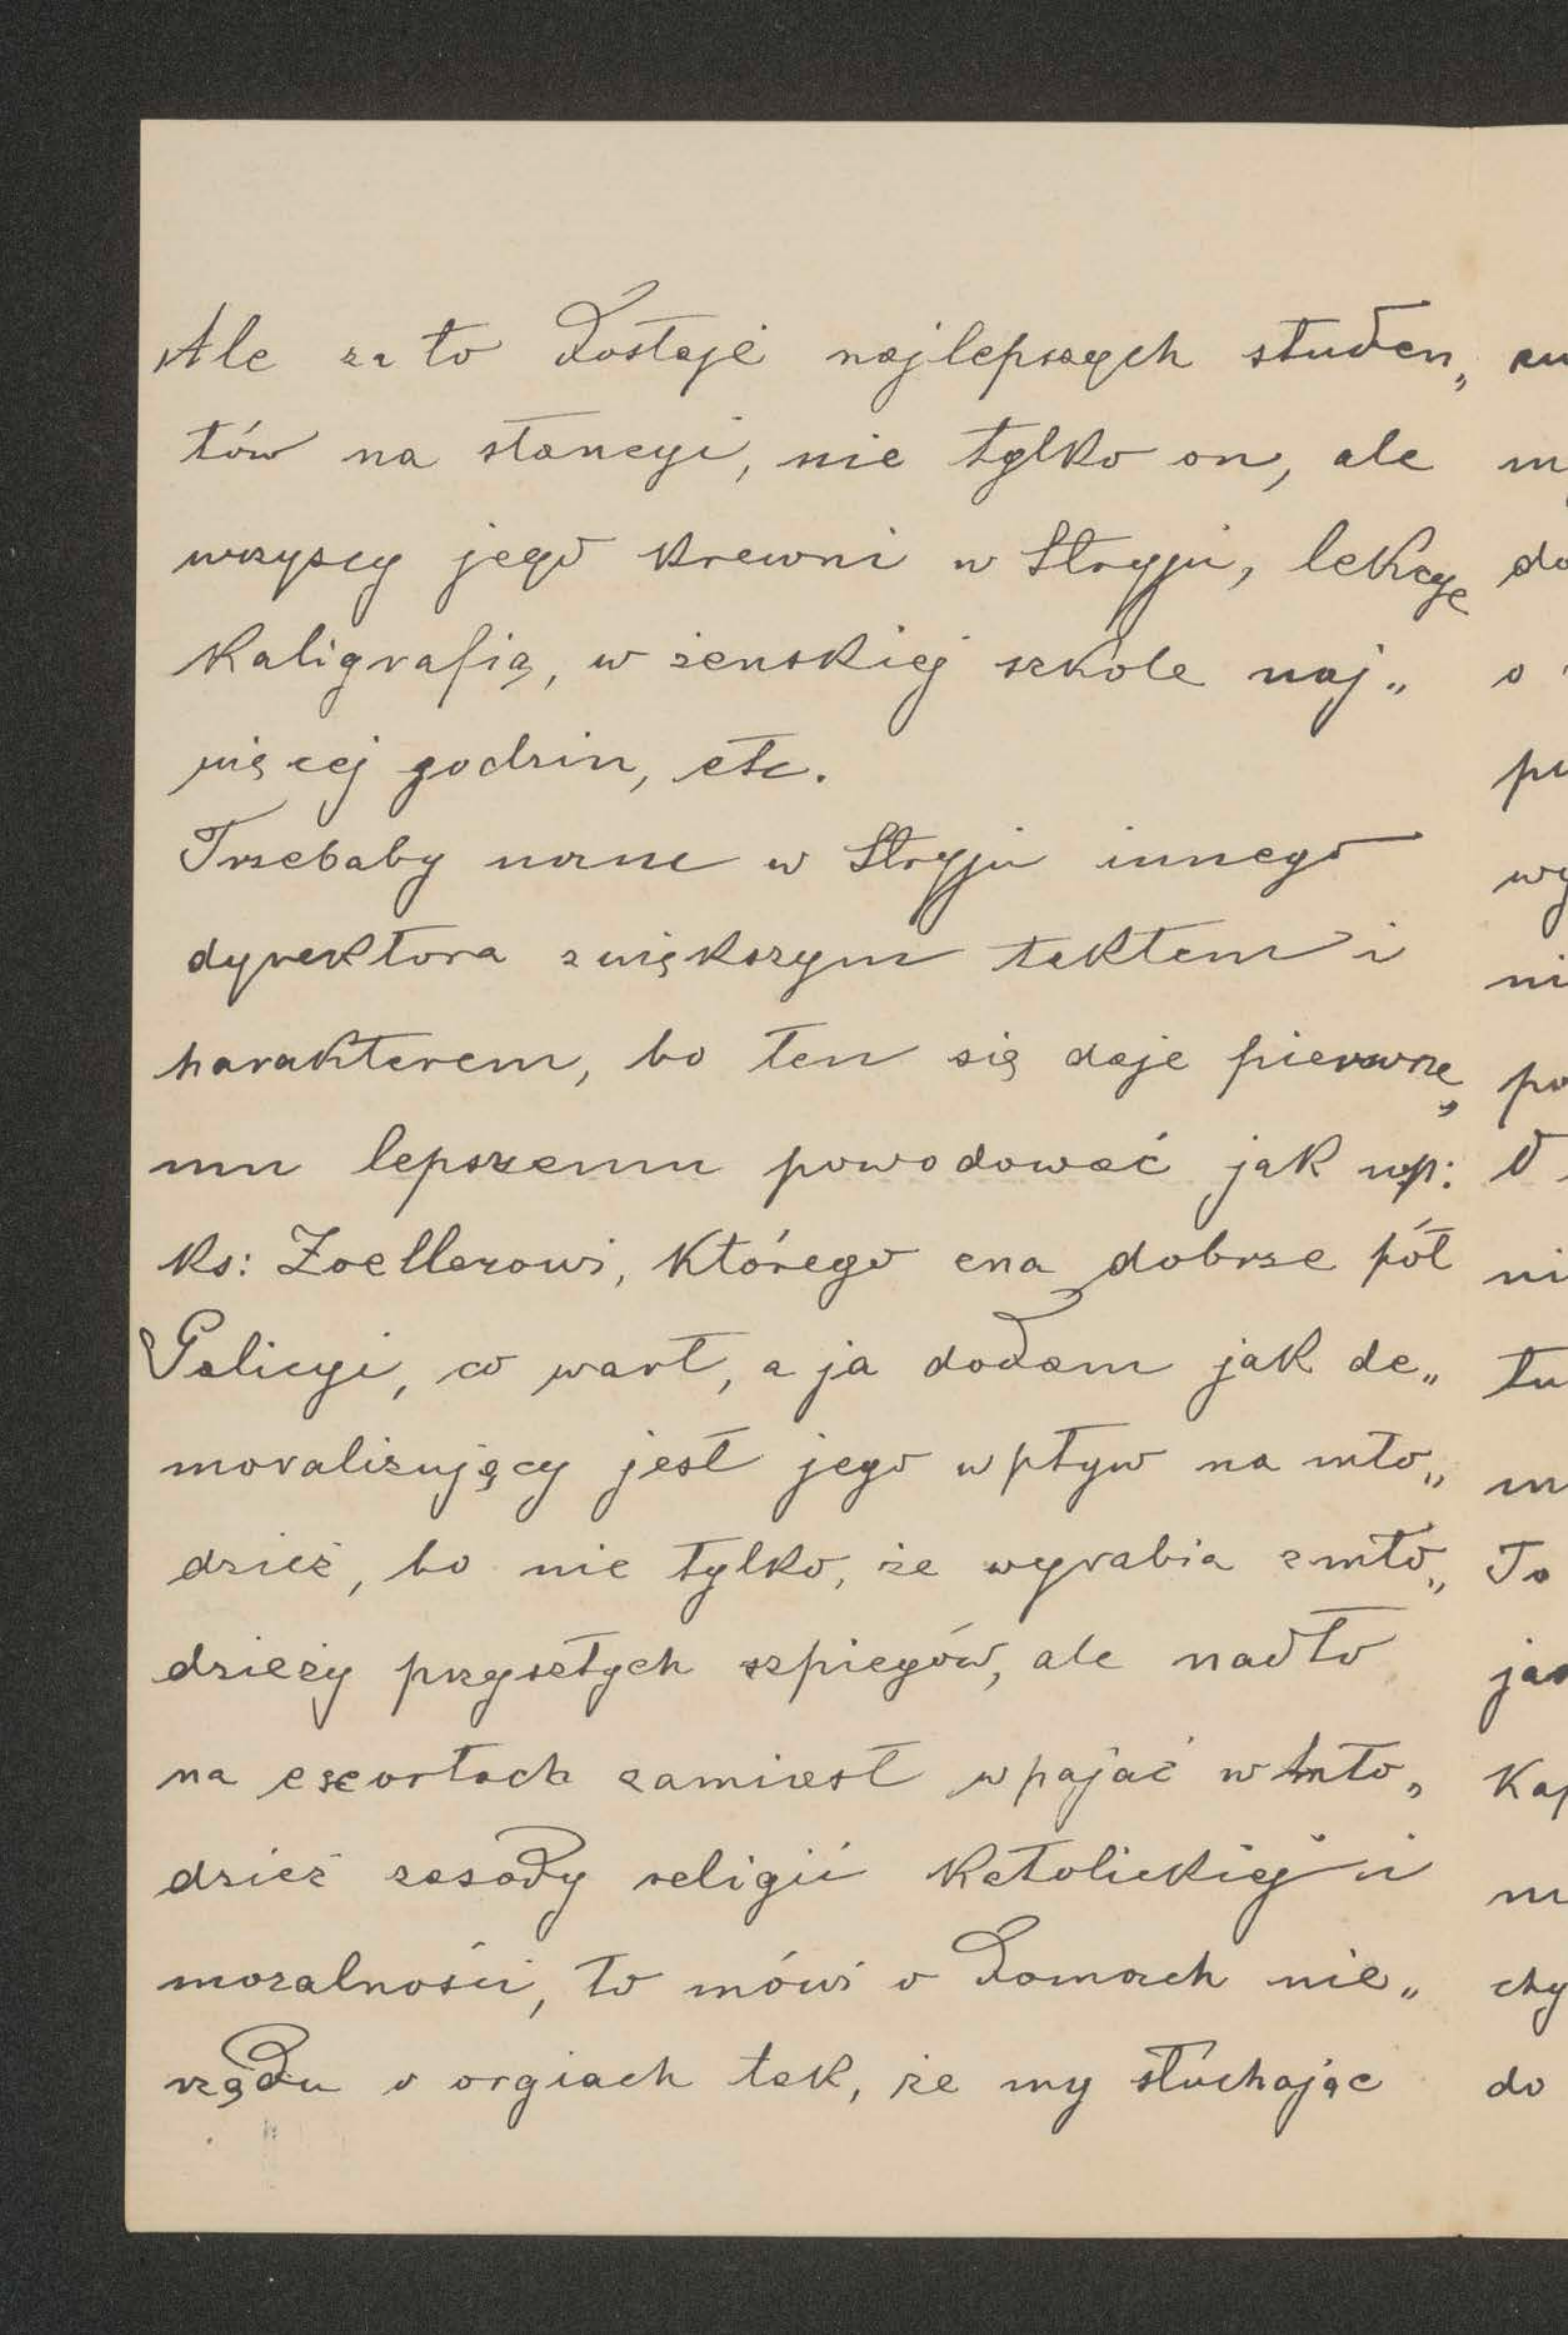 Ale za to dostaje najlepszych studen„
tów na stancyi, nie tylko on, ale
wszyscy jego krewni w Stryju, lekcye
kaligrafią, w żenskiej szkole naj„
więcej godzin, etc.
Trzebaby w Stryju innego
dyrektora z większym taktem i
harakterem, bo ten się daje pierwsze„
mu lepszemu powodować jak np:
ks: Zoellerowi, którego zna dobrze pół
Galicyi, co wart, a ja dodam jak de„
moralizujący jest jego wpływ na mło„
dzież, bo nie tylko, że wyrabia z mło„
dzieży przyszłych szpiegów, ale nadto
na exortach zamiast wpajać w mło„
dzież zasady religii katolickiej i
moralności, to mówi o domach nie„
rządu o orgiach tak, że my słuchając